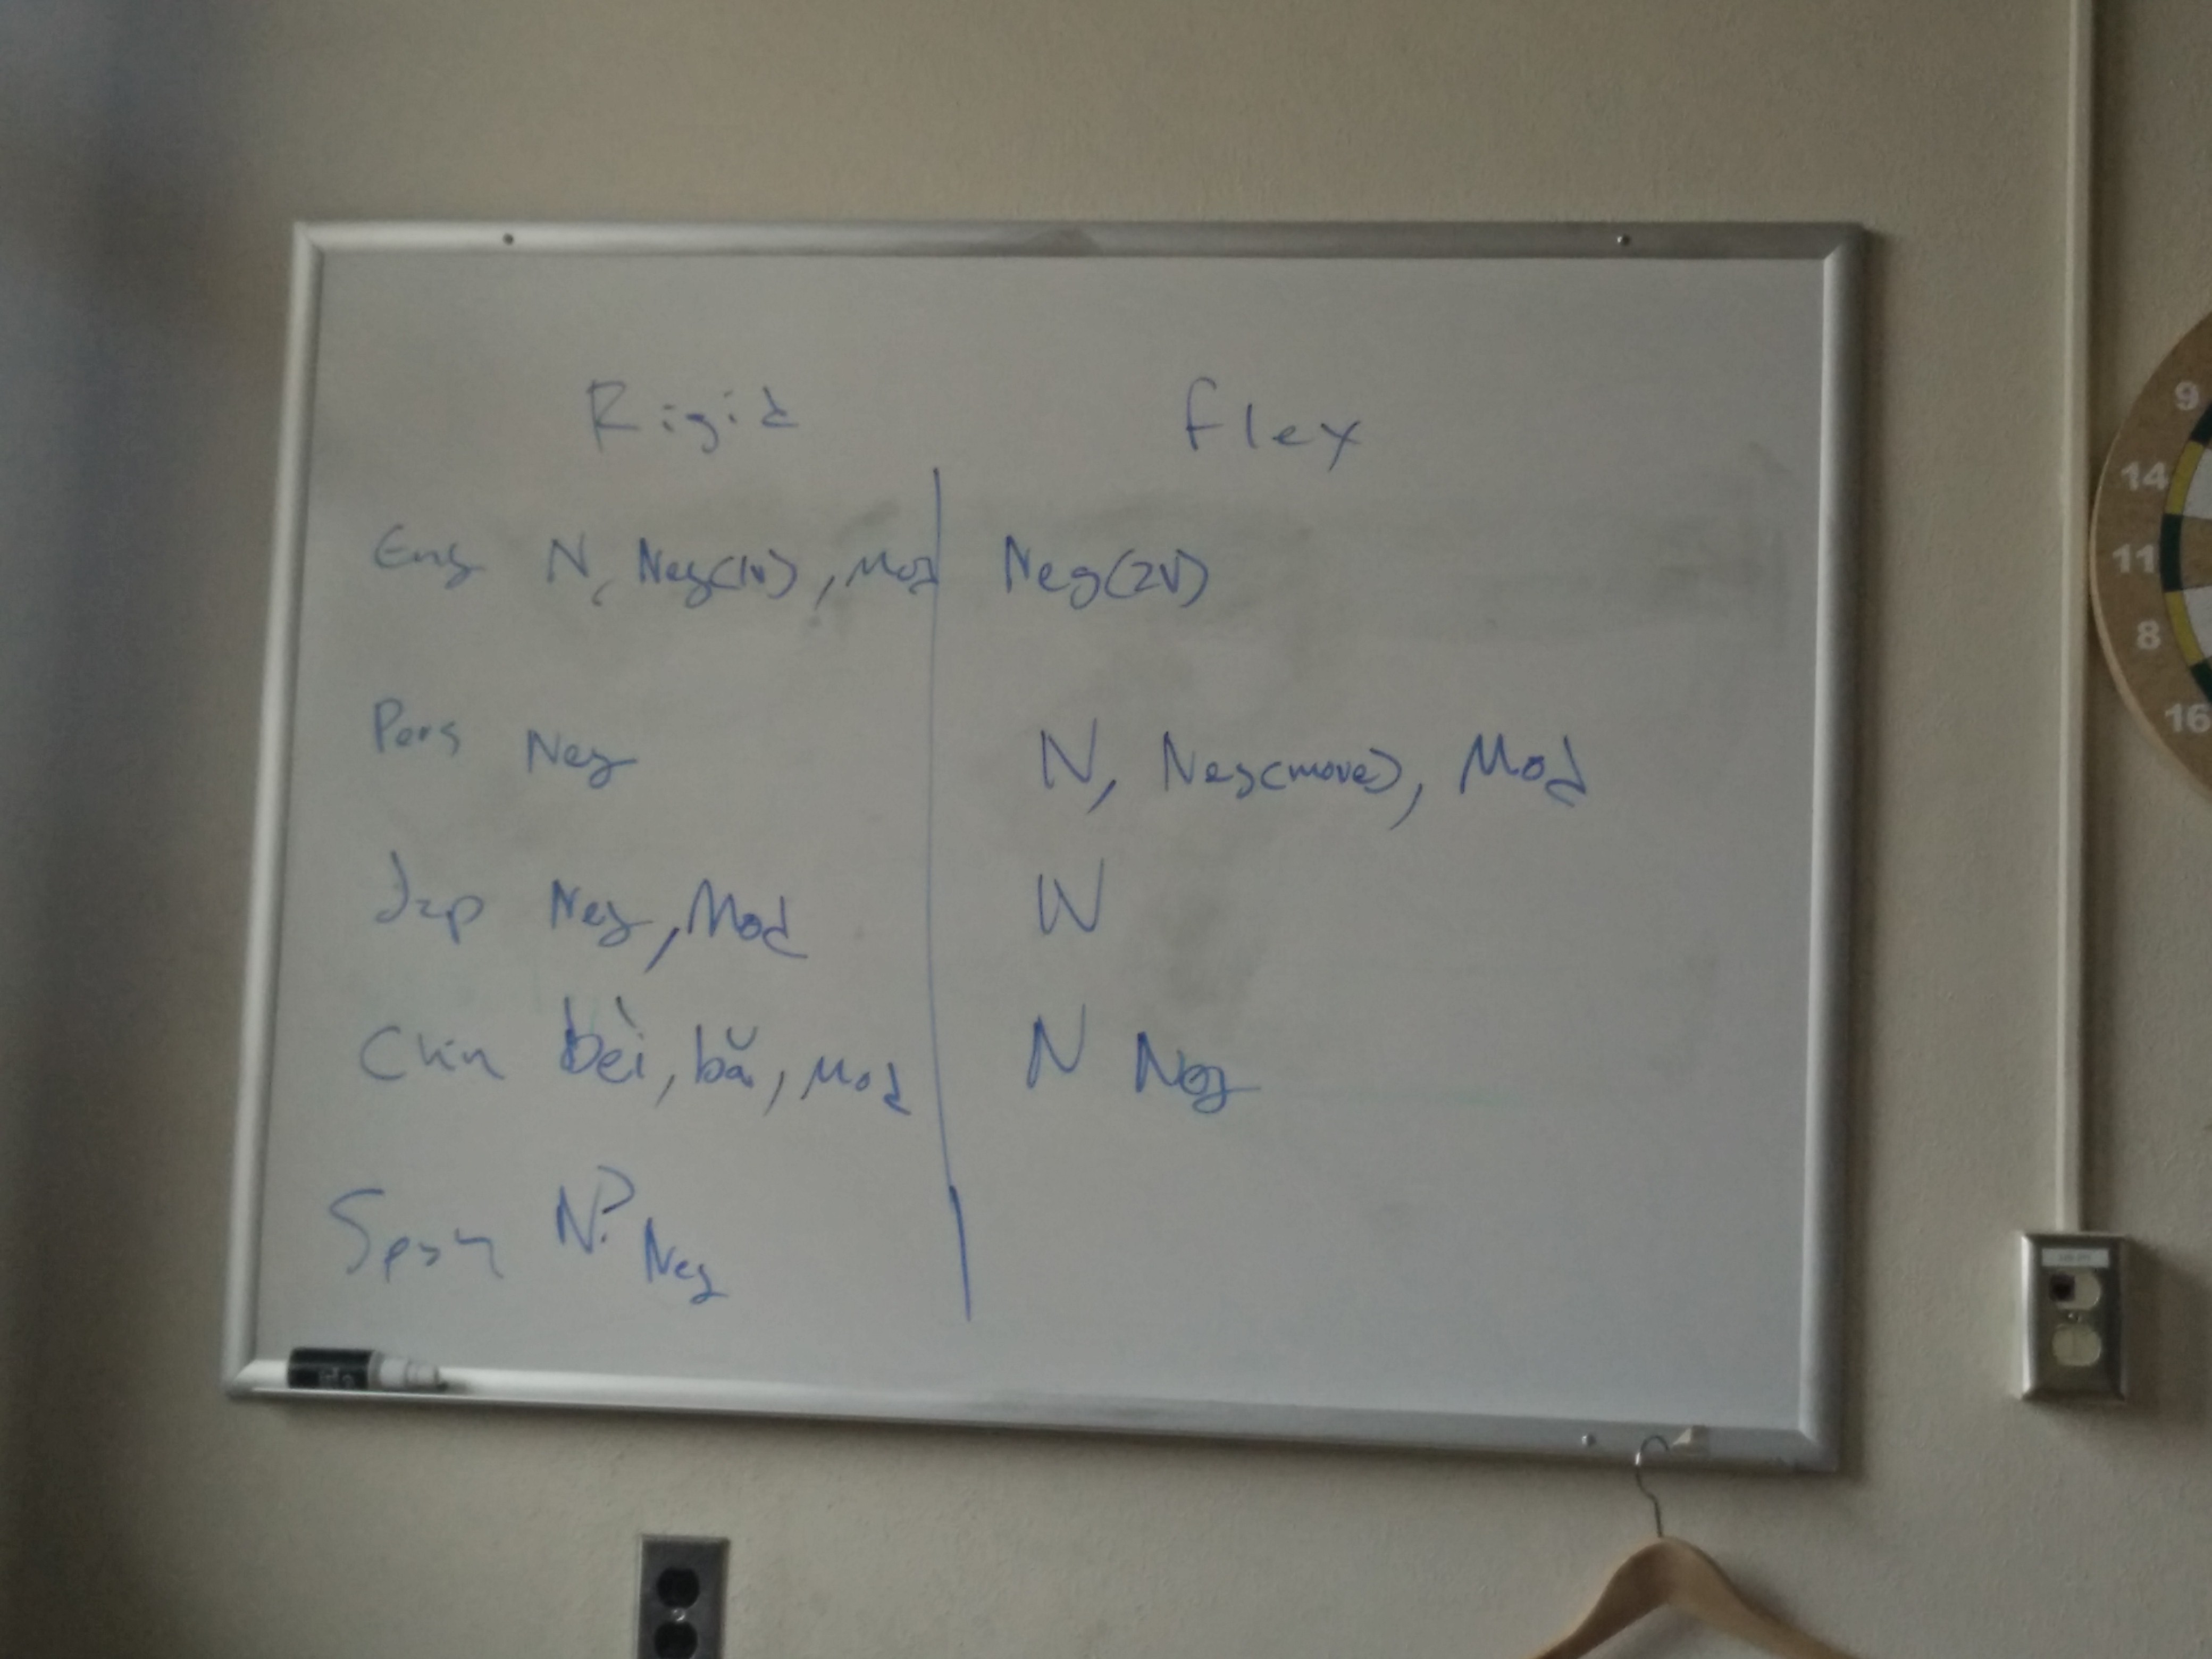 Rigid flex
Eng N, Neg(1V), Mod Neg(2V)
Pers Neg N, Neg(move), Mod
Jap Neg, Mod N
Chin bèi, bă, Mod N Neg
Span N? Neg
9
14
11
8
16